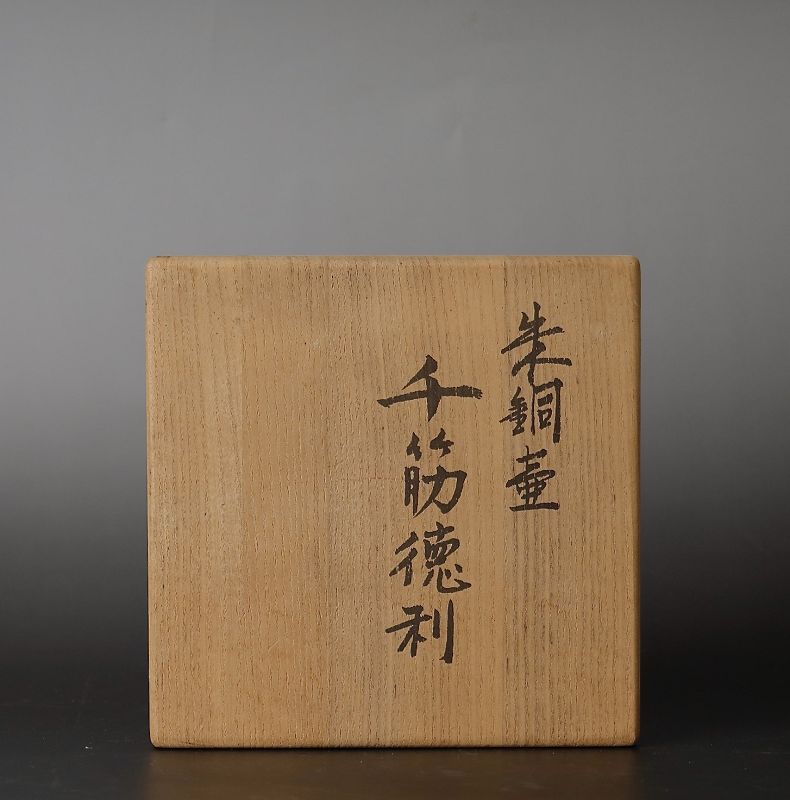 朱銅壷
千筋徳利